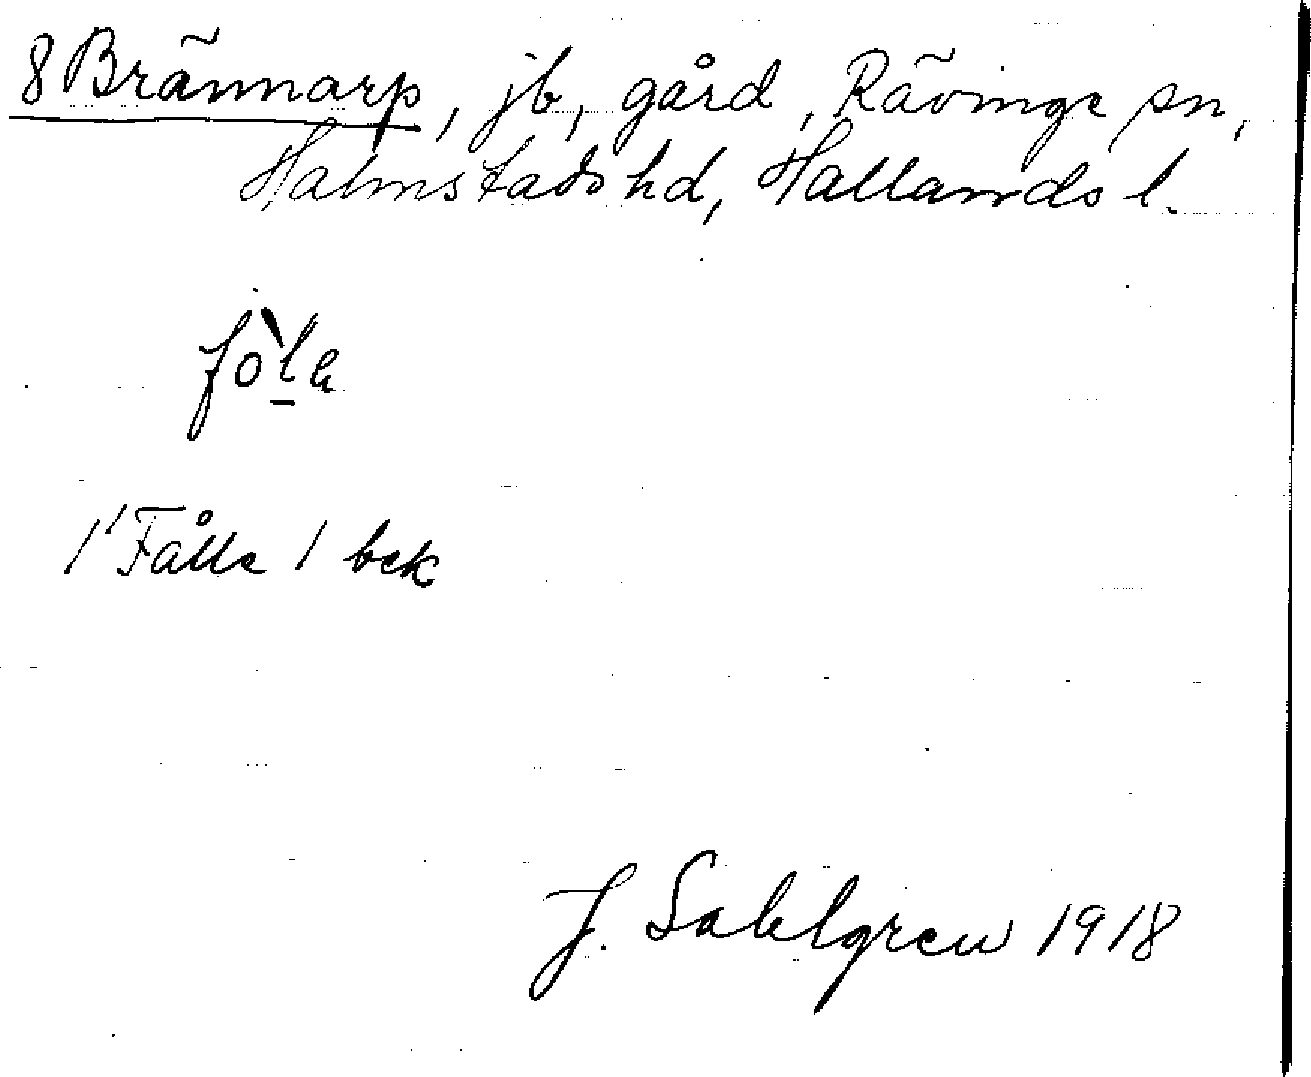 8 Brännarp, jb, gård, Rävinge sn,
Halmstads hd, Hallands l.
fo&#768;l̠a
/'Fålle / bek
J. Sahlgren 1918